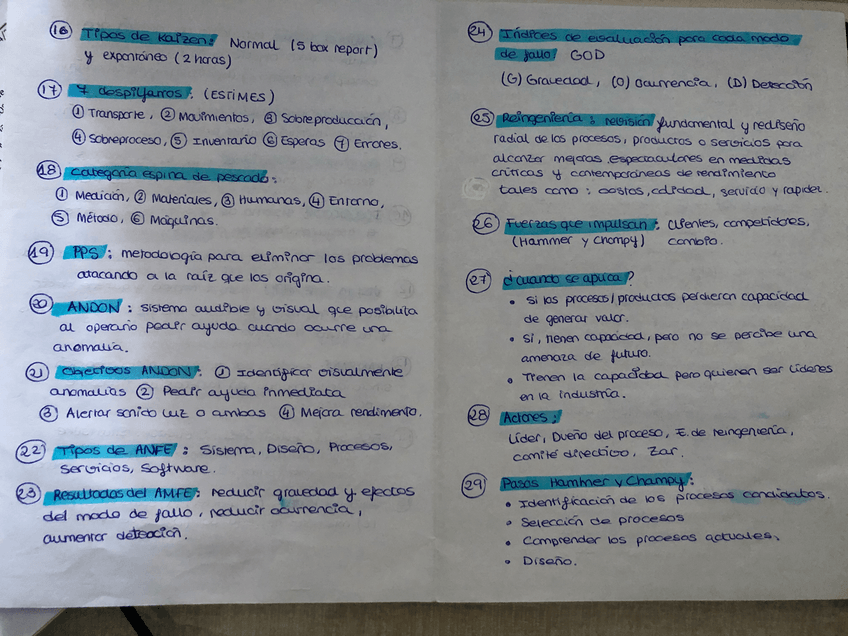 16 Tipos de Kaizen: Normal (5 box report)
y expontáneo (2 horas)
17 7 despilfarros: (ESTIMES)
① Transporte, ② Movimientos, ③ Sobreproducción,
④ Sobreproceso, ⑤ Inventario ⑥ Esperas ⑦ Errores.
18 Categoría espina de pescado:
① Medición, ② Materiales, ③ Humanas, ④ Entorno,
⑤ Método, ⑥ Máquinas.
19 PPS: metodología para eliminar los problemas
atacando a la raíz que los origina.
20 ANDON: sistema audible y visual que posibilita
al operario pedir ayuda cuando ocurre una
anomalía.
21 Objetivos ANDON: ① Identificar visualmente
anomalías ② Pedir ayuda inmediata
③ Alertar sonido luz o ambas ④ Mejora rendimiento.
22 Tipos de ANFE: Sistema, Diseño, Procesos,
Servicios, Software.
23 Resultados del AMFE: reducir gravedad y efectos
del modo de fallo, reducir ocurrencia,
aumentar detección.
24 Índices de evaluación para cada modo
de fallo GOD
(G) Gravedad, (O) Ocurrencia, (D) Detección
25 Reingeniería: revisión fundamental y rediseño
radial de los procesos, productos o servicios para
alcanzar mejoras espectaculares en medidas
críticas y contemporáneas de rendimiento
tales como: costos, calidad, servicio y rapidez.
26 Fuerzas que impulsan: clientes, competidores,
(Hammer y Champy) cambio.
27 ¿Cuándo se aplica?
• Si los procesos/productos perdieron capacidad
de generar valor.
• Si, tienen capacidad, pero no se percibe una
amenaza de futuro.
• Tienen la capacidad pero quieren ser líderes
en la industria.
28 Actores:
Líder, Dueño del proceso, E. de reingeniería,
comité directivo, Zar.
29 Pasos Hammer y Champy:
• Identificación de los procesos candidatos.
• Selección de procesos
• Comprender los procesos actuales,
• Diseño.